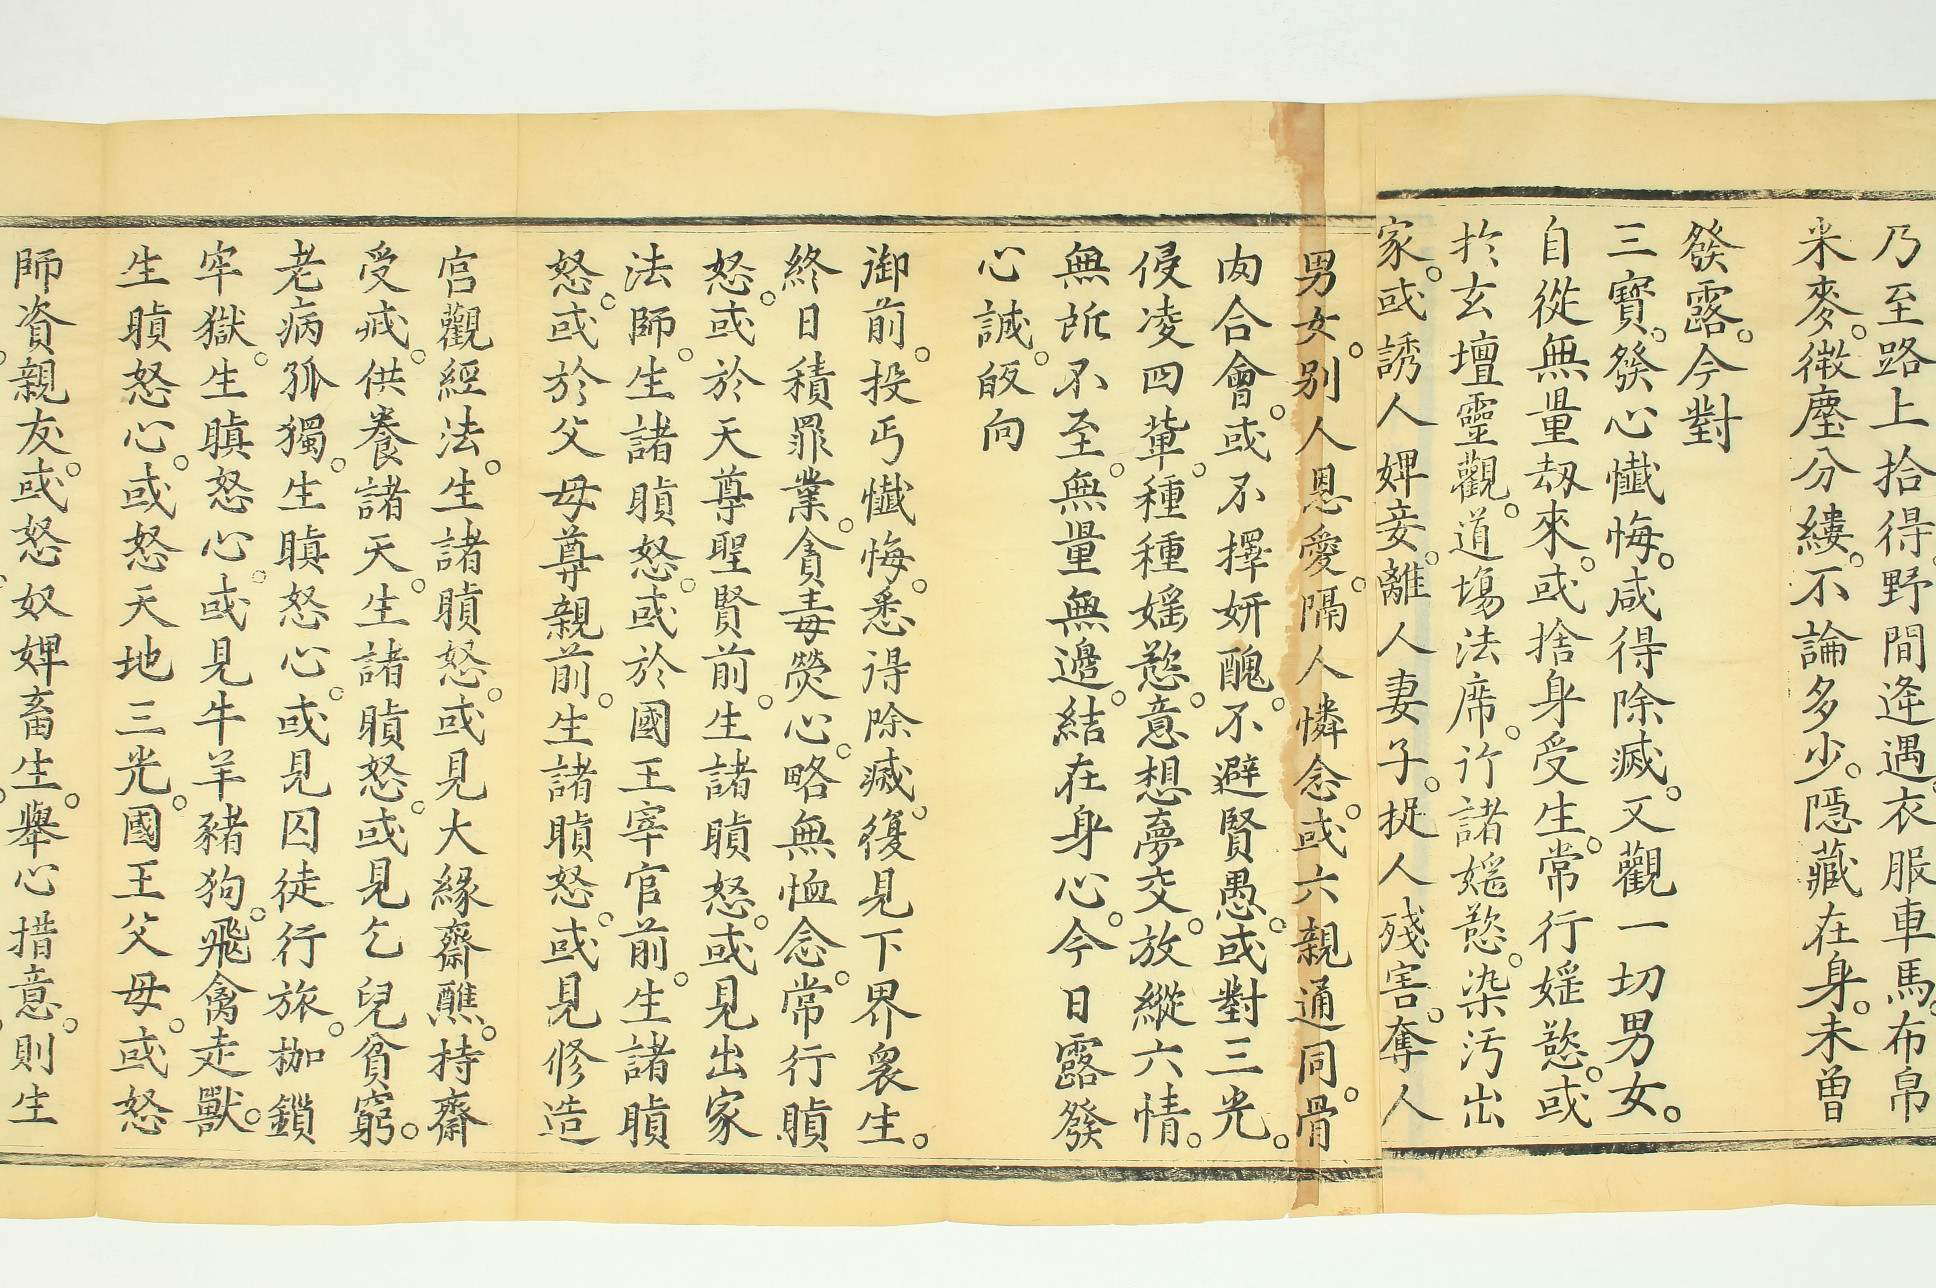 乃至路上拾得野間逄遇衣服車馬布帛
米麥微塵分縷不論多少隱藏在身未曽
發露今對
三寶發心懴悔咸得除㓕又觀一切男女
自從無量刼來或捨身受生常行婬慾或
扵玄壇靈觀道塲法席行諸婬慾染汚出
家或誘人婢妾離人妻子捉人殘害奪人
男女别人恩愛隔人憐念或六親通同骨
肉合㑹或不擇妍醜不避賢愚或對三光
侵凌四輩種種婬慾意想夢交放縱六情
無所不至無量無邊結在身心今日露發
心誠皈向
御前投丐懴悔悉得除㓕復見下界衆生
終日積罪業貪毒熒心略無恤念常行瞋
怒或於天尊聖賢前生諸瞋怒或見出家
法師生諸瞋怒或於國王宰官前生諸瞋
怒或於父母尊親前生諸瞋怒或見修造
宫觀經法生諸瞋怒或見大緣齋醮持齋
受戒供養諸天生諸瞋怒或見乞兒貧窮
老病孤獨生瞋怒心或見囚徒行旅枷鎖
牢獄生瞋怒心或見牛羊豬狗飛禽走獸
生瞋怒心或怒天地三光國王父母或怒
師資親友或怒奴婢畜生舉心措意則生